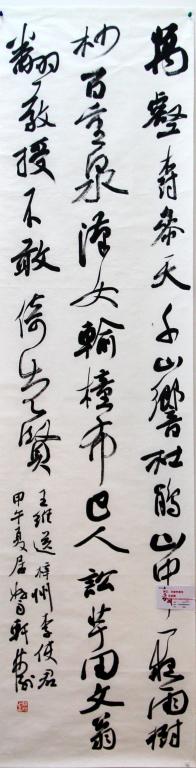 萬壑樹參天千山響杜鵑山中一夜雨樹
杪百重泉漢女輸橦布巴人訟芋田文翁
翻教授不敢倚先賢
王維送梓州李使君
甲午夏